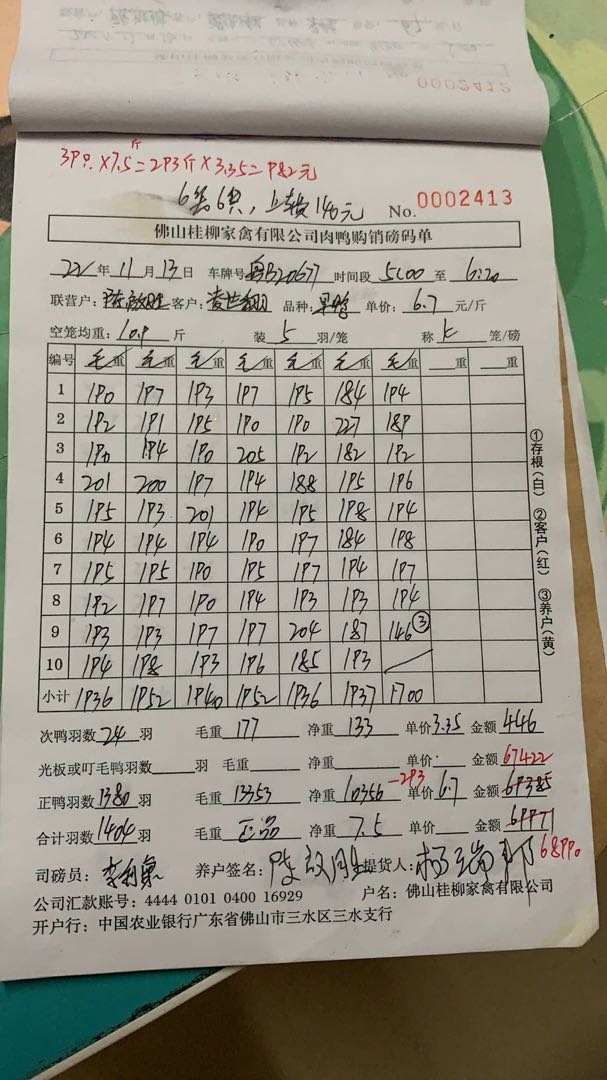 0002412
39只×7.5斤=293斤×3.35=982元
6只, 140元
No. 0002413
佛山桂柳家禽有限公司肉鸭购销磅码单
22年11月13日 车牌号粤B20677 时间段5:00至6:20
联营户: 客户: 品种: 单价:6.7元/斤
空笼均重:10.9斤 装5羽/笼 称 笼/磅
编号 毛重 毛重 毛重 毛重 毛重 毛重 毛重 重 重
1 190 197 193 197 195 184 194
2 192 191 195 190 190 227 189
3 190 194 190 205 192 182 192
4 201 200 197 194 188 195 196
5 195 193 201 194 195 198 194
6 194 194 194 190 197 184 198
7 195 195 190 195 197 194 197
8 192 197 190 194 193 193 194
9 193 193 197 197 204 187 146③
10 194 198 193 196 185 193
小计 1936 1952 1940 1952 1936 1937 1700
①存根(白) ②客户(红) ③养户(黄)
次鸭羽数24羽 毛重177 净重133 单价3.35 金额446
光板或叮毛鸭羽数 羽 毛重 净重 单价 金额67422
正鸭羽数1380羽 毛重13353 净重10356-293 单价6.7 金额69385
合计羽数1404羽 毛重正品 净重7.5 单价 金额69971
68990
司磅员: 养户签名: 提货人:
公司汇款账号: 4444 0101 0400 16929 户名: 佛山桂柳家禽有限公司
开户行: 中国农业银行广东省佛山市三水区三水支行